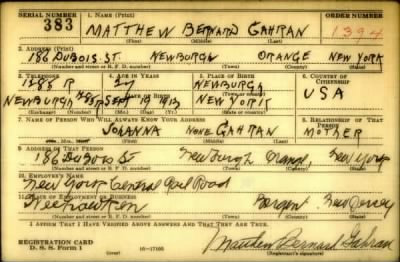 SERIAL NUMBER 1. NAME (Print) ORDER NUMBER
383 MATTHEW BERNARD GAHRAN 1394
(First) (Middle) (Last)
2. ADDRESS (Print)
186 DUBOIS. ST. NEWBURGH ORANGE NEW YORK
(Number and street or R. F. D. number) (Town) (County) (State)
3. TELEPHONE 4. AGE IN YEARS 5. PLACE OF BIRTH 6. COUNTRY OF CITIZENSHIP
1585 R 27 NEWBURGH
DATE OF BIRTH (Town or county) USA
NEWBURGH SEPT 19 1913 NEW YORK
(Exchange) (Mo.) (Day) (Yr.) (State or country)
7. NAME OF PERSON WHO WILL ALWAYS KNOW YOUR ADDRESS 8. RELATIONSHIP OF THAT PERSON
JOHANNA NONE GAHRAN MOTHER
(Mr., Mrs., Miss) (First) (Middle) (Last)
9. ADDRESS OF THAT PERSON
186 DuBois St Newburgh Orange New York
(Number and street or R. F. D. number) (Town) (County) (State)
10. EMPLOYER'S NAME
New York Central Rail Road
11. PLACE OF EMPLOYMENT OR BUSINESS
Weehawken Bergen New Jersey
(Number and street or R. F. D. number) (Town) (County) (State)
I AFFIRM THAT I HAVE VERIFIED ABOVE ANSWERS AND THAT THEY ARE TRUE.
REGISTRATION CARD
D. S. S. Form 1 16-17105 Matthew Bernard Gahran
(Registrant's signature)